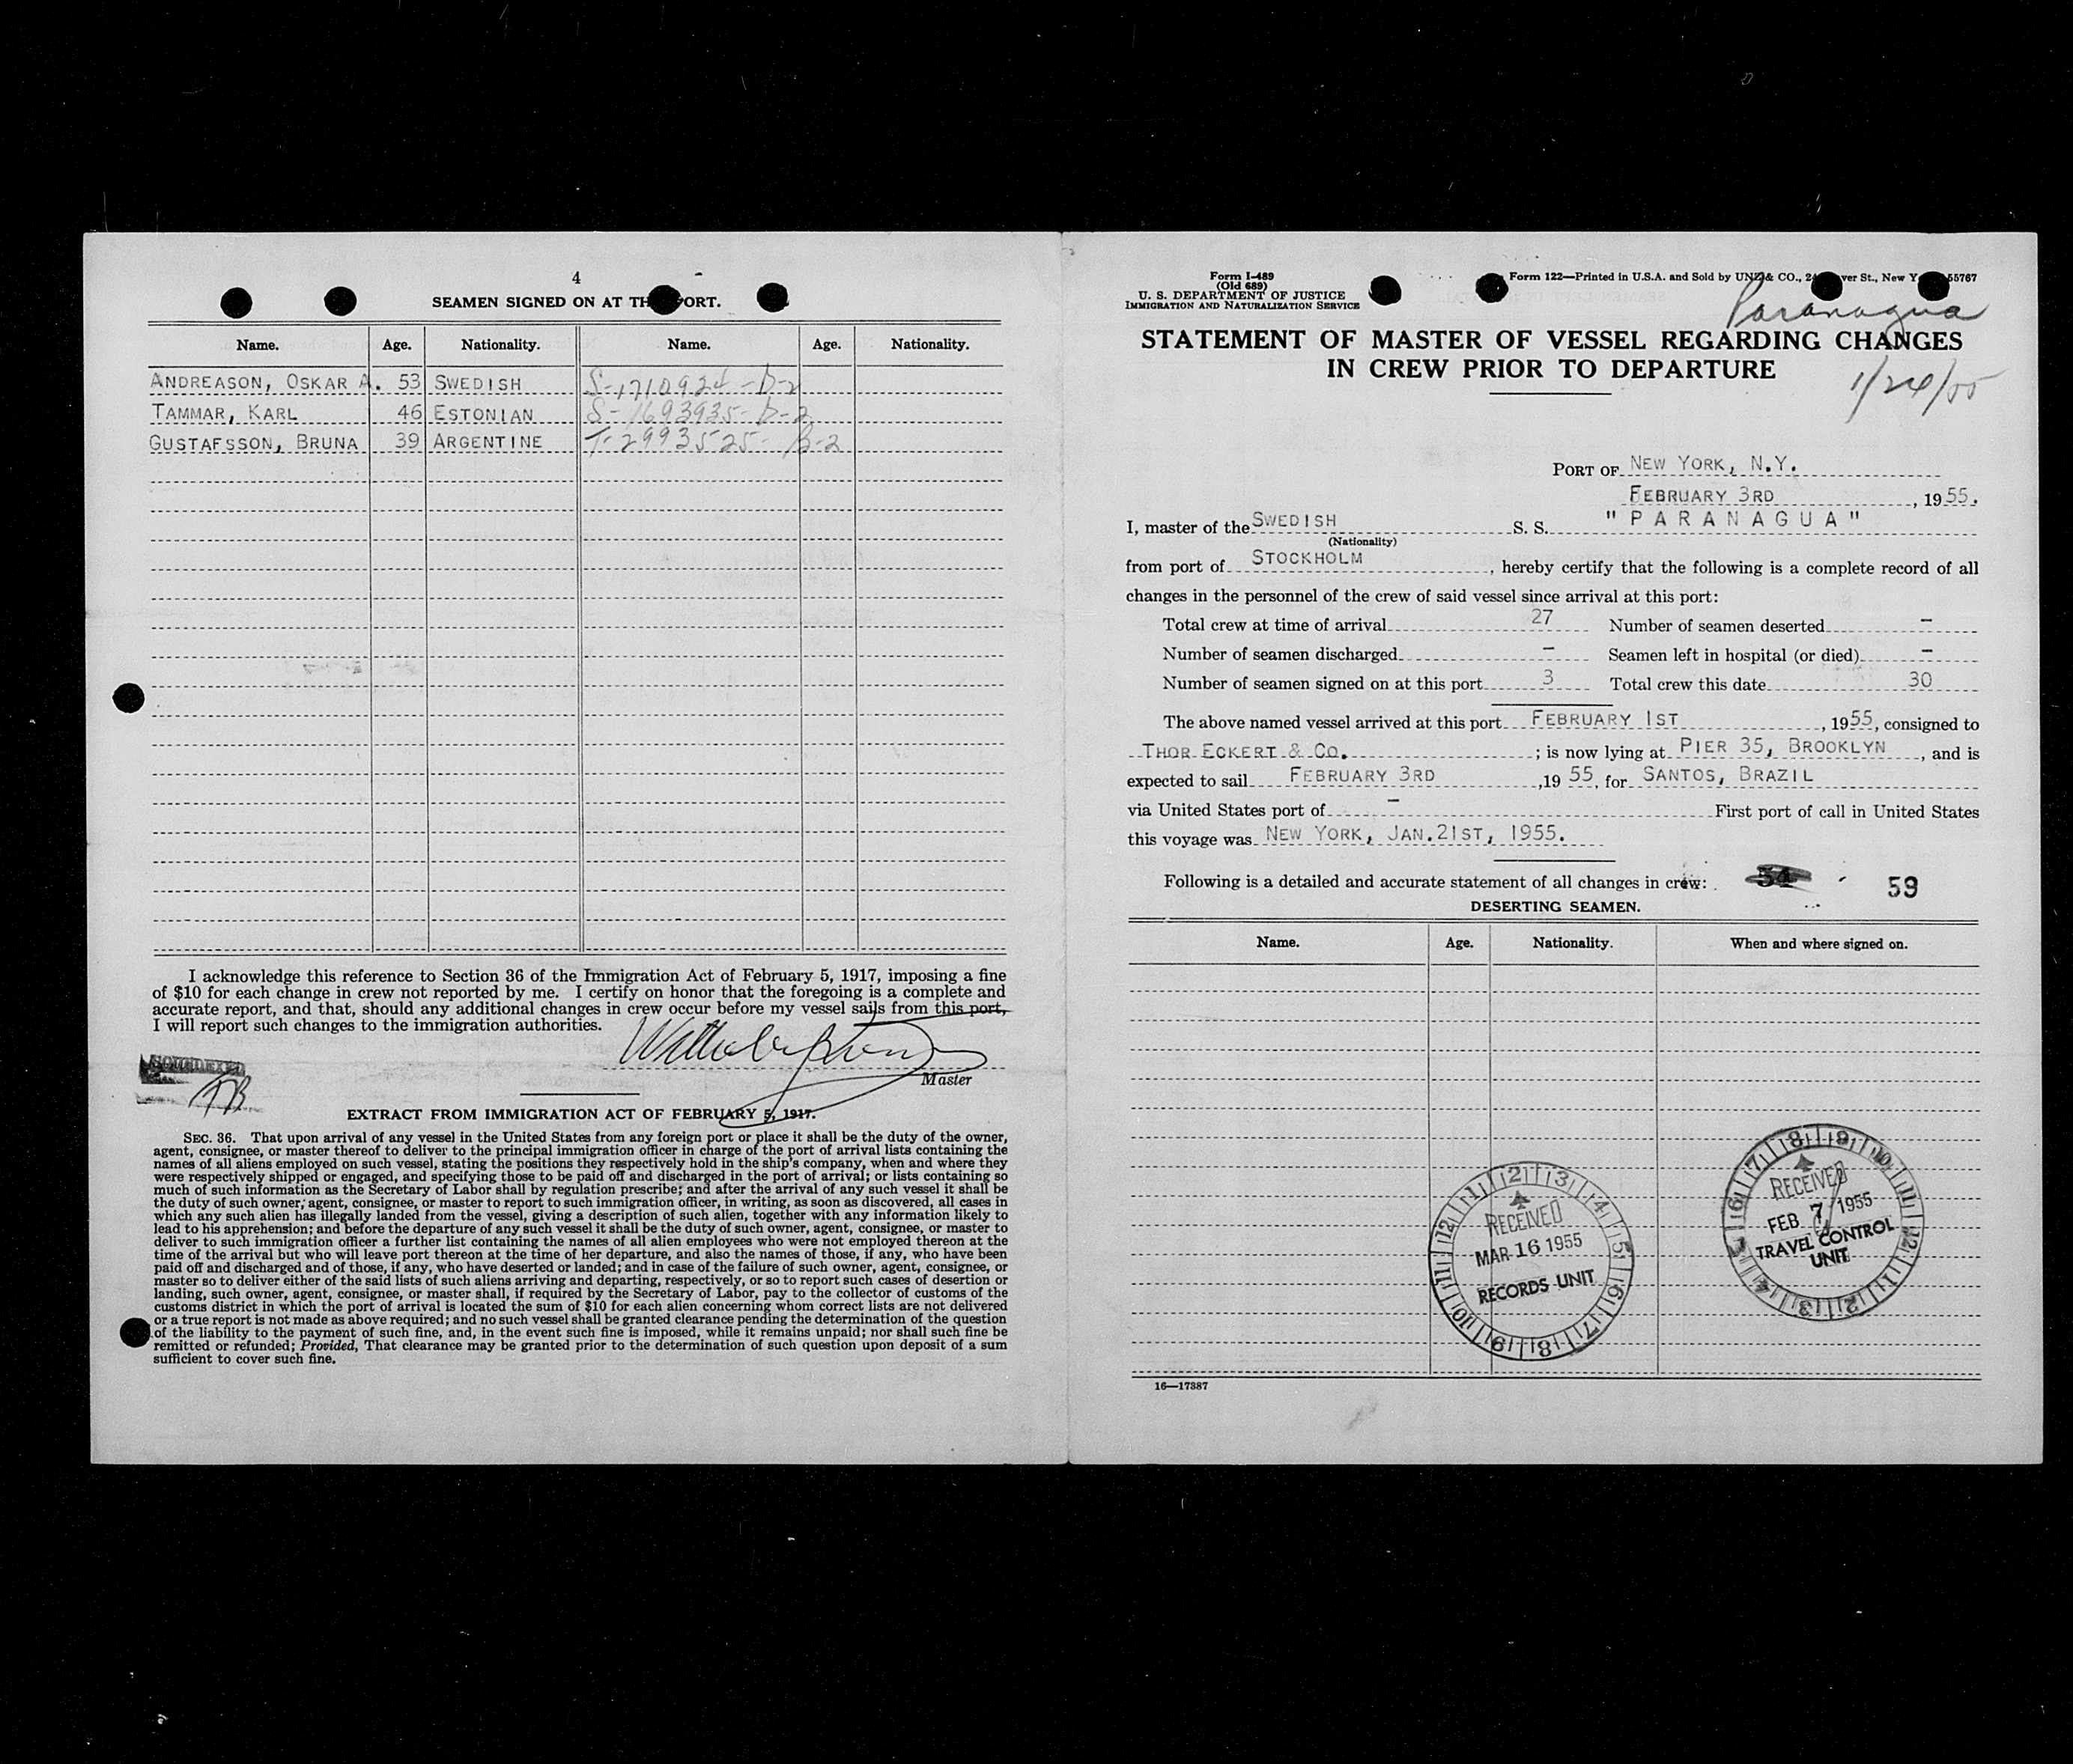 4
SEAMEN SIGNED ON AT TH PORT.
Name. Age. Nationality. Name. Age. Nationality.
ANDREASON, OSKAR A. 53 SWEDISH S-1710924-D-2
TAMMAR, KARL 46 ESTONIAN S-1693935-D-2
GUSTAFSSON, BRUNA 39 ARGENTINE T-2993525- B-2
I acknowledge this reference to Section 36 of the Immigration Act of February 5, 1917, imposing a fine
of $10 for each change in crew not reported by me. I certify on honor that the foregoing is a complete and
accurate report, and that, should any additional changes in crew occur before my vessel sails from this port,
I will report such changes to the immigration authorities.
Master
EXTRACT FROM IMMIGRATION ACT OF FEBRUARY 5, 1917.
SEC. 36. That upon arrival of any vessel in the United States from any foreign port or place it shall be the duty of the owner,
agent, consignee, or master thereof to deliver to the principal immigration officer in charge of the port of arrival lists containing the
names of all aliens employed on such vessel, stating the positions they respectively hold in the ship's company, when and where they
were respectively shipped or engaged, and specifying those to be paid off and discharged in the port of arrival; or lists containing so
much of such information as the Secretary of Labor shall by regulation prescribe; and after the arrival of any such vessel it shall be
the duty of such owner, agent, consignee, or master to report to such immigration officer, in writing, as soon as discovered, all cases in
which any such alien has illegally landed from the vessel, giving a description of such alien, together with any information likely to
lead to his apprehension; and before the departure of any such vessel it shall be the duty of such owner, agent, consignee, or master to
deliver to such immigration officer a further list containing the names of all alien employees who were not employed thereon at the
time of the arrival but who will leave port thereon at the time of her departure, and also the names of those, if any, who have been
paid off and discharged and of those, if any, who have deserted or landed; and in case of the failure of such owner, agent, consignee, or
master so to deliver either of the said lists of such aliens arriving and departing, respectively, or so to report such cases of desertion or
landing, such owner, agent, consignee, or master shall, if required by the Secretary of Labor, pay to the collector of customs of the
customs district in which the port of arrival is located the sum of $10 for each alien concerning whom correct lists are not delivered
or a true report is not made as above required; and no such vessel shall be granted clearance pending the determination of the question
of the liability to the payment of such fine, and, in the event such fine is imposed, while it remains unpaid; nor shall such fine be
remitted or refunded; Provided, That clearance may be granted prior to the determination of such question upon deposit of a sum
sufficient to cover such fine.
Form I-489
(Old 689)
U. S. DEPARTMENT OF JUSTICE
IMMIGRATION AND NATURALIZATION SERVICE
Form 122—Printed in U.S.A. and Sold by UNZ & CO., 24 ver St., New Y 55767
Paranagua
STATEMENT OF MASTER OF VESSEL REGARDING CHANGES
IN CREW PRIOR TO DEPARTURE
1/24/55
PORT OF NEW YORK, N.Y.
FEBRUARY 3RD, 1955.
I, master of the SWEDISH S. S. "PARANAGUA"
(Nationality)
from port of STOCKHOLM, hereby certify that the following is a complete record of all
changes in the personnel of the crew of said vessel since arrival at this port:
Total crew at time of arrival 27 Number of seamen deserted –
Number of seamen discharged – Seamen left in hospital (or died) –
Number of seamen signed on at this port 3 Total crew this date 30
The above named vessel arrived at this port FEBRUARY 1ST, 1955, consigned to
THOR ECKERT & CO.; is now lying at PIER 35, BROOKLYN, and is
expected to sail FEBRUARY 3RD, 1955, for SANTOS, BRAZIL
via United States port of – First port of call in United States
this voyage was NEW YORK, JAN.21ST, 1955.
Following is a detailed and accurate statement of all changes in crew: 54 59
DESERTING SEAMEN.
Name. Age. Nationality. When and where signed on.
RECEIVED
MAR 16 1955
RECORDS UNIT
RECEIVED
FEB 7 1955
TRAVEL CONTROL
UNIT
16—17387